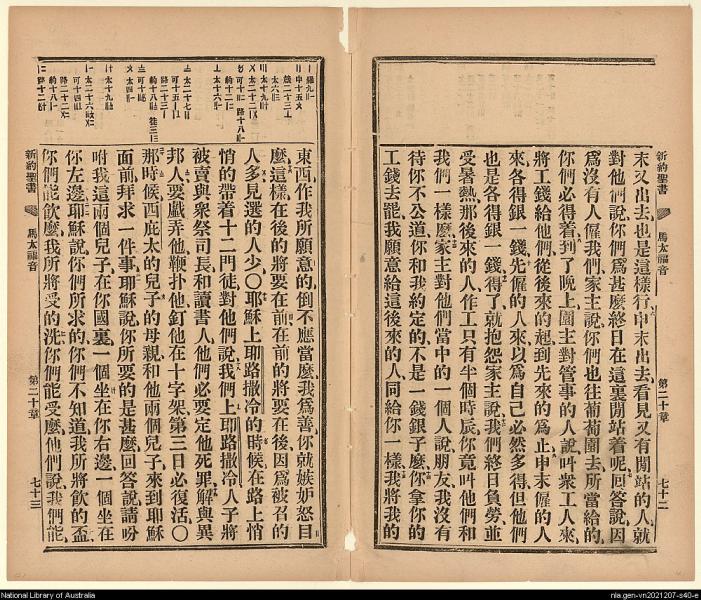 新約聖書 馬太福音 第二十章 七十二
末又出去也是這樣行申末出去看見又有閒站的人就
對他們說你們爲甚麼終日在這裏閒站着呢回答說因
爲沒有人僱我們家主說你們也往葡萄園去所當給的
你們必得着到了晚上園主對管事的人說叫衆工人來
將工錢給他們從後來的起到先來的爲止申末僱的人
來各得銀一錢先僱的人來以爲自己必然多得但他們
也是各得銀一錢得了就抱怨家主說我們終日負勞並
受暑熱那後來的人作工只有半個時辰你竟叫他們和
我們一樣麼家主對他們當中的一個人說朋友我沒有
待你不公道你和我約定的不是一錢銀子麼你拿你的
工錢去罷我願意給這後來的人同給你一樣我將我的
東西作我所願意的倒不應當麼我爲善你就嫉妬怒目
麼這樣在後的將要在前在前的將要在後因爲被召的
人多見選的人少〇耶穌上耶路撒冷的時候在路上悄
悄的帶着十二門徒對他們說我們上耶路撒冷人子將
被賣與衆祭司長和讀書人他們必要定他死罪解與異
邦人要戲弄他鞭扑他釘他在十字架第三日必復活〇
那時候西庇太的兒子的母親和他兩個兒子來到耶穌
面前拜求一件事耶穌說你所要的是甚麼回答說請吩
咐我這兩個兒子在你國裏一個坐在你右邊一個坐在
你左邊耶穌說你們所求的你們不知道我所將飲的盃
你們能飲麼我所將受的洗你們能受麼他們說我們能
新約聖書 馬太福音 第二十章 七十三
National Library of Australia
nla.gen-vn2021207-s40-e